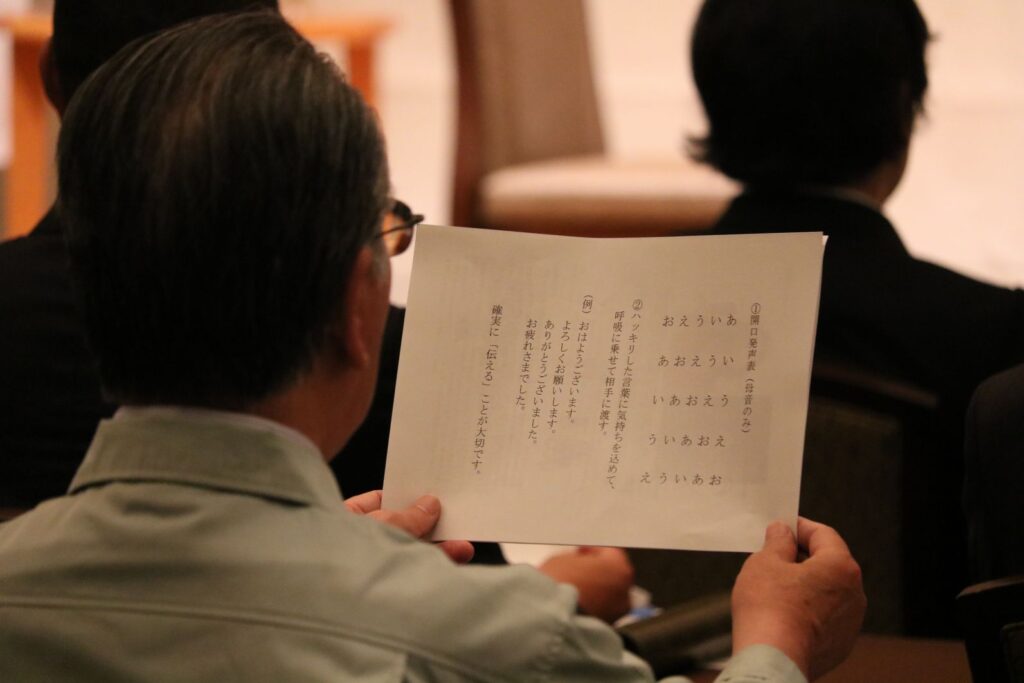 ①開口発声表（母音のみ）
あいうえお
いうえおあ
うえおあい
えおあいう
おあいうえ
②ハッキリした言葉に気持ちを込めて、
呼吸に乗せて相手に渡す。
（例）おはようございます。
よろしくお願いします。
ありがとうございました。
お疲れさまでした。
確実に「伝える」ことが大切です。